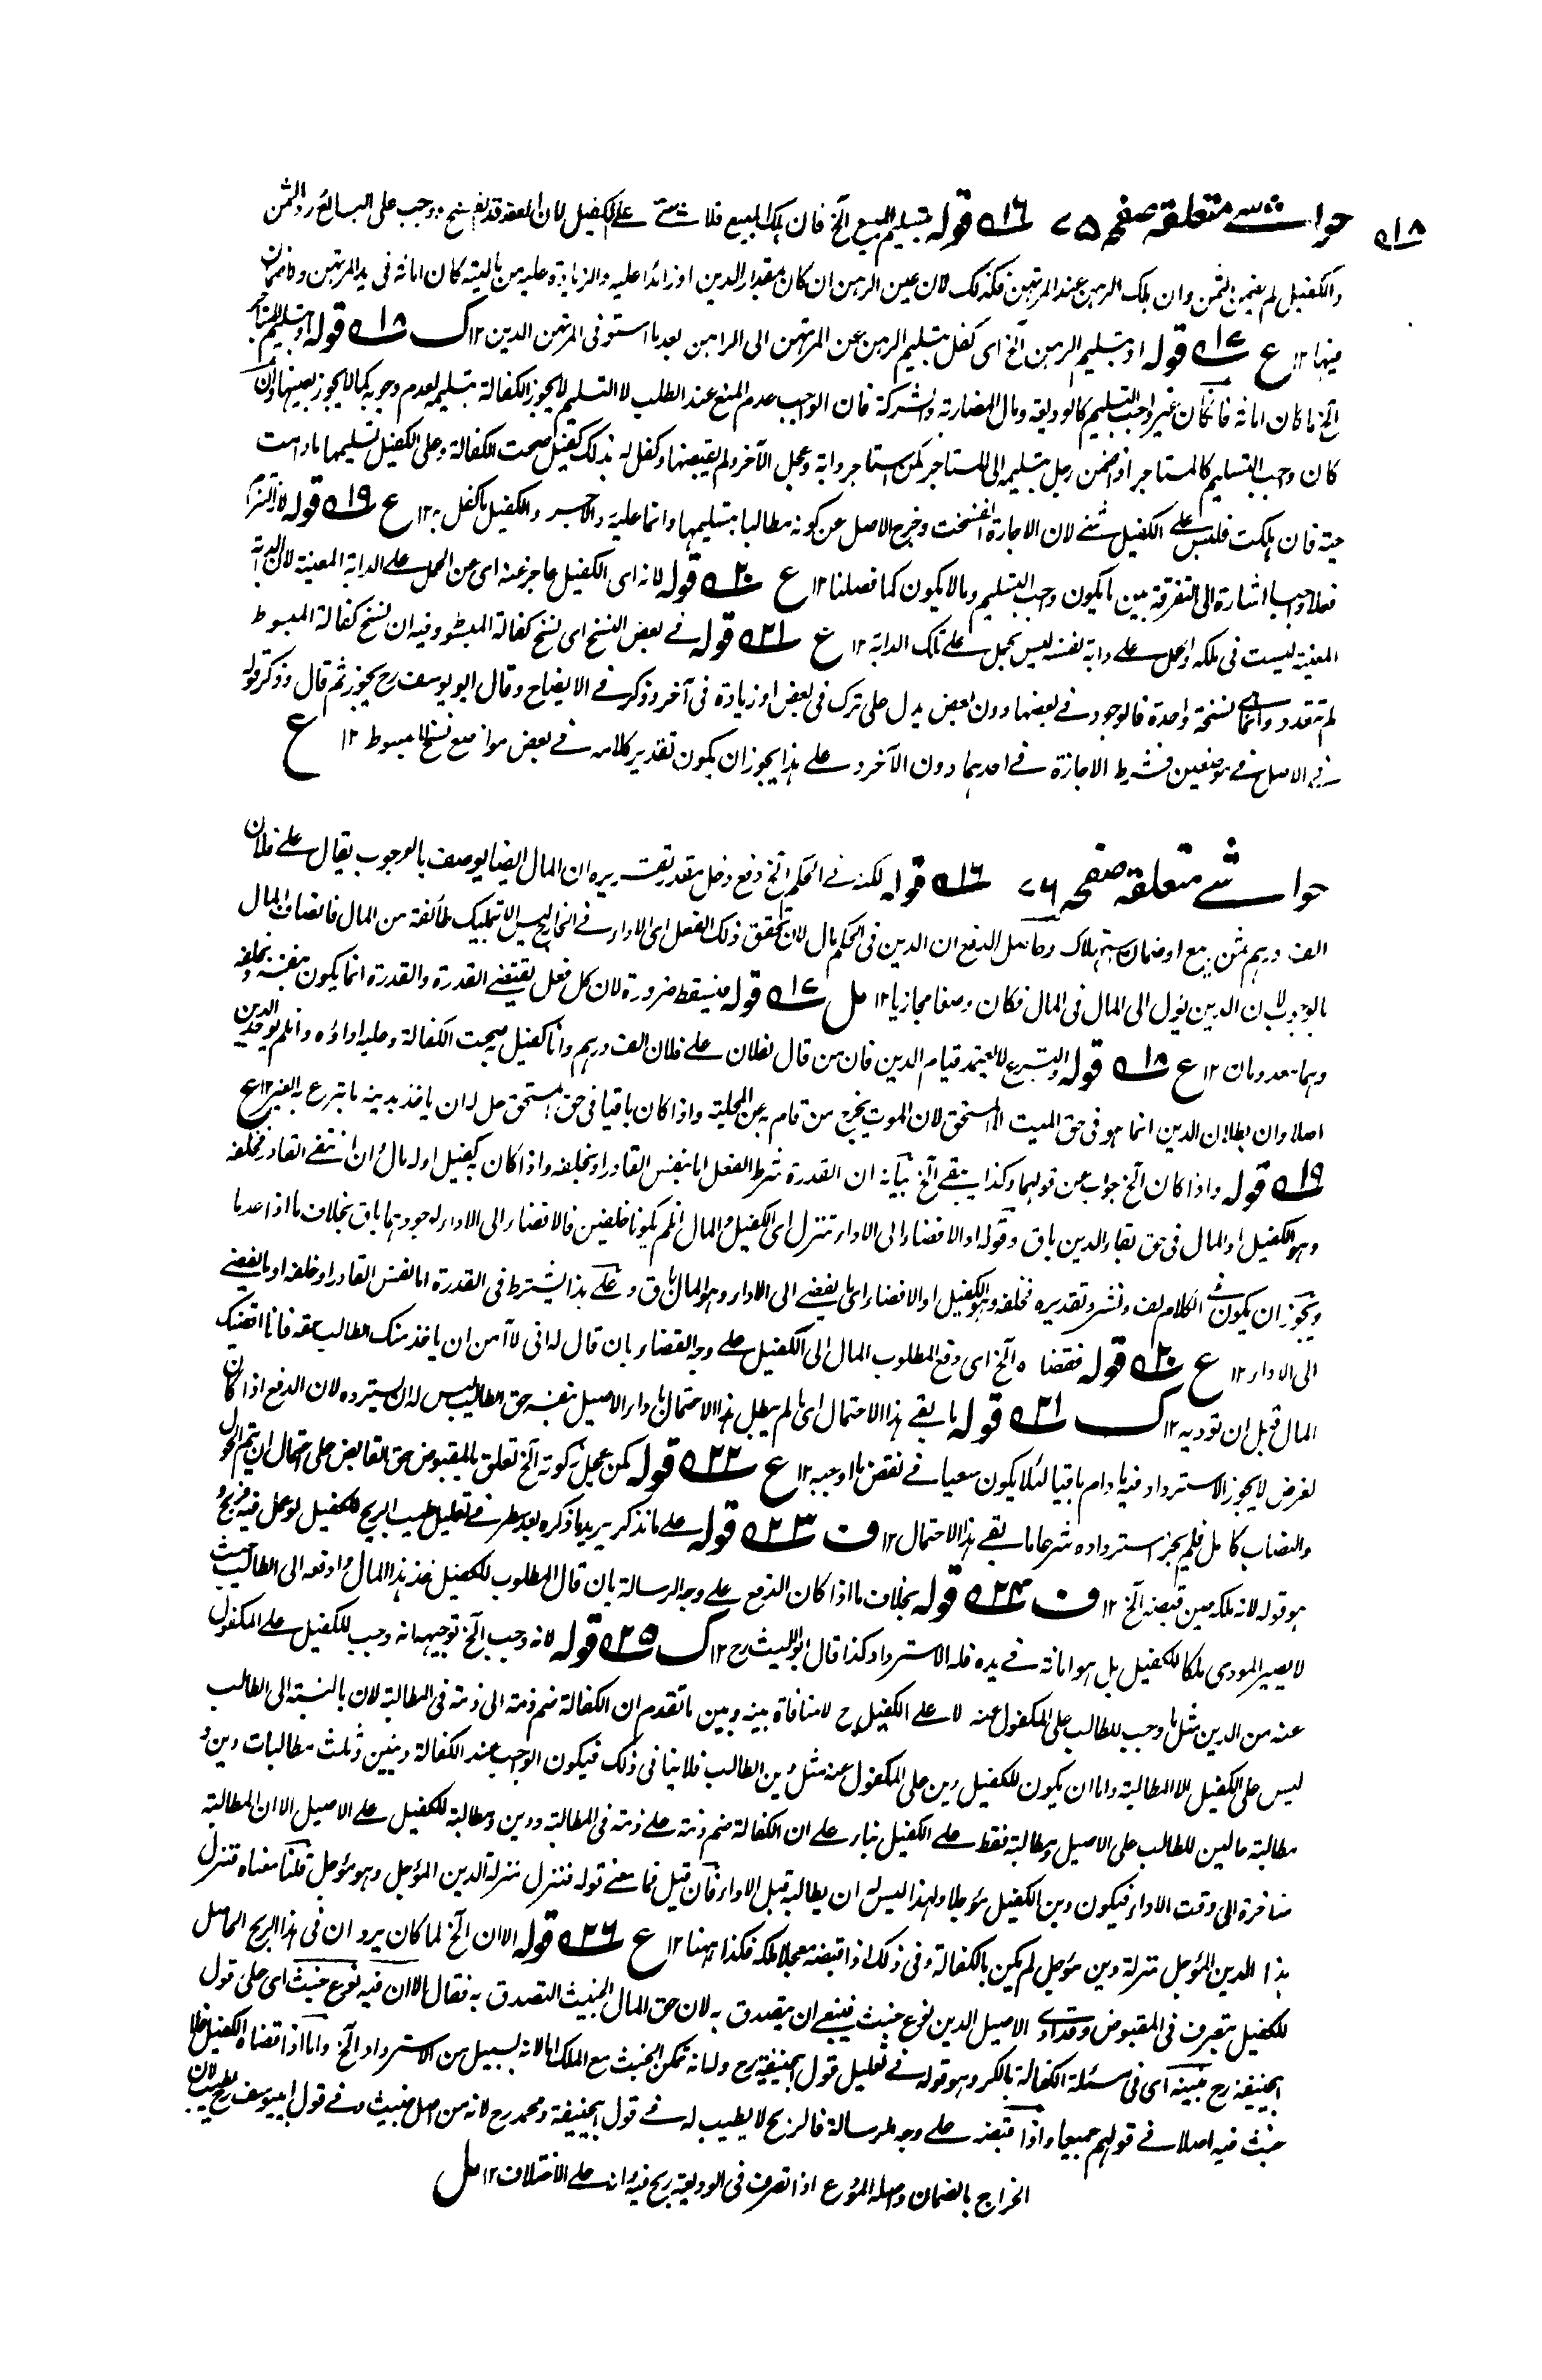 ۵۱۸
حواشے متعلقہ صفحہ ۷۵ ۱۶ قولہ بتسلیم المبیع آلخ فان ہلک المبیع فلا شئے علے الکفیل لان العقد قد انفسخ ووجب علی البائع رد الثمن
والکفیل لم یضمن الثمن وان ہلک الرہن عند المرتہن فکذلک لان عین الرہن ان کان بمقدار الدین او زائدا علیہ والزیادۃ علیہ من مالیتہ کان امانۃ فی ید المرتہن ولا ضمان
فیہا ۱۲ ع ۱۷ قولہ او بتسلیم الرہن آلخ ای کفل بتسلیم الرہن عن المرتہن الی الراہن بعد ما استوفی المرتہن الدین ۱۲ ک ۱۸ قولہ او بتسلیم المستاجر
آلخ ما کان امانۃ فان کان غیر واجب التسلیم کالودیعۃ ومال المضاربۃ والشرکۃ فان الواجب عدم المنع عند الطلب لا التسلیم لا یجوز الکفالۃ بتسلیمہ لعدم وجوبہ کما لا یجوز بعینہا وان
کان واجب التسلیم کالمستاجر اذا ضمن رجل بتسلیمہ الی المستاجر کمن استاجر دابۃ وعجل الآخر ولم یقبضہا وکفل لہ بذلک کفیل صحت الکفالۃ وعلی الکفیل تسلیمہا ما دامت
حیۃ فان ہلکت فلیس علے الکفیل شئے لان الاجارۃ انفسخت وخرج الاصل عن کونہ مطالبا بتسلیمہا وانما علیہ رد الاجر والکفیل ما کفل بہ ۱۲ ع ۱۹ قولہ لانہ التزم
فعلا واجبا اشارۃ الی التفرقۃ بین ما یکون واجب التسلیم وما لا یکون کما فصلنا ۱۲ ع ۲۰ قولہ لانہ ای الکفیل عاجز عنہ ای عن الحمل علے الدابۃ المعینۃ لان الدابۃ
المعینۃ لیست فی ملکہ والحمل علے دابۃ نفسہ لیس بحمل علے تلک الدابۃ ۱۲ ع ۲۱ قولہ فے بعض النسخ ای نسخ کفالۃ المبسوط وفیہ ان نسخ کفالۃ المبسوط
لم تتعدد وانما ہے نسخۃ واحدۃ فالوجود فے بعضہا دون بعض یدل علی ترک فی بعض او زیادۃ فی آخر وذکر فے الایضاح وقال ابو یوسف رح یجوز ثم قال وذکر قولہ
فے الاصل فے موضعین فشرط الاجازۃ فے احدہما دون الآخر وعلے ہذا یجوز ان یکون تقدیر کلامہ فے بعض مواضع نسخ المبسوط ۱۲ ع
حواشے متعلقہ صفحہ ۷۶ ۱۶ قولہ لکنہ فے الحکم آلخ دفع دخل مقدر تقریرہ ان المال ایضا یوصف بالوجوب یقال علے فلان
الف درہم ثمن مبیع او ضمان مستہلک وحاصل الدفع ان الدین فی الحکم مال لان تحقق ذلک الفعل ای الاداء فے الخارج لیس الا بتملیک طائفۃ من المال فاتصاف المال
بالوجوب لان الدین یؤل الی المال فی المال فکان وصفا مجازیا ۱۲ مل ۱۷ قولہ فیسقط ضرورۃ لان کل فعل یقتضے القدرۃ والقدرۃ انما یکون بنفسہ وبخلفہ
وہما معدومان ۱۲ ع ۱۸ قولہ والتبرع لا یعتمد قیام الدین فان من قال لفلان علے فلان الف درہم وانا کفیل بہ صحت الکفالۃ وعلیہ اداؤہ وان لم یوجد الدین
اصلا وان بطلان الدین انما ہو فی حق المیت لا المستحق لان الموت یخرج من قام بہ عن المحلیۃ واذا کان باقیا فی حق المستحق حل لہ ان یاخذ بدینہ ما تبرع بہ الغیر ۱۲ ع
۱۹ قولہ واذا کان آلخ جواب عن قولہما وکذا یبقے آلخ بیانہ ان القدرۃ شرط الفعل اما بنفس القادر او بخلفہ واذا کان بہ کفیل او لہ مال ان انتفے القادر فخلفہ
وہو الکفیل او المال فی حق بقاء الدین باق وقولہ او الافضاء الی الاداء تنزل ای الکفیل والمال ان لم یکونا خلفین فالافضاء الی الاداء لوجودہما باق بخلاف ما اذا عدما
ویجوز ان یکون فے الکلام لف ونشر وتقدیرہ فخلفہ وہو الکفیل او الافضاء ای ما یفضے الی الاداء وہو المال باق وعلے ہذا یشترط فی القدرۃ اما نفس القادر او خلفہ او ما یفضے
الی الاداء ۱۲ ع ۲۰ قولہ فقضاہ آلخ ای دفع المطلوب المال الی الکفیل علے وجہ القضاء بان قال لہ انی لا آمن ان یاخذ منک الطالب حقہ فانا اقضیک
المال قبل ان تؤدیہ ۱۲ ک ۲۱ قولہ ما بقے ہذا الاحتمال ای ما لم یبطل ہذا الاحتمال باداء الاصیل بنفسہ حق الطالب لیس لہ ان یستردہ لان الدفع اذا کان
لغرض لا یجوز الاسترداد فیہ ما دام باقیا لئلا یکون سعیا فے نقض ما اوجبہ ۱۲ ع ۲۲ قولہ کمن عجل زکوتہ آلخ تعلق بالمقبوض حق القابض علی احتمال ان یتم الحول
والنصاب کامل فلم یجز استردادہ شرعا ما بقے ہذا الاحتمال ۱۲ ف ۲۳ قولہ علے ما نذکر یرید ما ذکرہ بعد سطر فے تعلیل طیب الربح للکفیل لو عمل فیہ فربح و
ہو قولہ لانہ ملکہ حین قبضہ آلخ ۱۲ ف ۲۴ قولہ بخلاف ما اذا کان الدفع علے وجہ الرسالۃ بان قال المطلوب للکفیل خذ ہذا المال وادفعہ الی الطالب حیث
لا یصیر المودی ملکا للکفیل بل ہو امانۃ فے یدہ فلہ الاسترداد کذا قال ابو اللیث رح ۱۲ ک ۲۵ قولہ لانہ وجب آلخ توجیہہ انہ وجب للکفیل علے المکفول
عنہ من الدین مثل ما وجب للطالب علی المکفول عنہ لا علے الکفیل ح لا منافاۃ بینہ وبین ما تقدم ان الکفالۃ ضم ذمۃ الی ذمۃ فی المطالبۃ لان بالنسبۃ الی الطالب
لیس علی الکفیل الا المطالبۃ واما ان یکون للکفیل دین علی المکفول عنہ مثل دین الطالب فلا ینافی ذلک فیکون الواجب عند الکفالۃ دینین وثلث مطالبات دین و
مطالبۃ حالین للطالب علی الاصیل ومطالبۃ فقط علے الکفیل بناء علے ان الکفالۃ ضم ذمۃ علے ذمۃ فی المطالبۃ ودین ومطالبۃ للکفیل علے الاصیل الا ان المطالبۃ
متاخرۃ الی وقت الاداء فیکون دین الکفیل مؤجلا ولہذا لیس لہ ان یطالبہ قبل الاداء فان قیل فما معنے قولہ فنزل منزلۃ الدین المؤجل وہو مؤجل قلنا معناہ تنزل
ہذا الدین المؤجل منزلۃ دین مؤجل لم یکن بالکفالۃ وفی ذلک اذا قبضہ معجلا ملکہ فکذا ہہنا ۱۲ ع ۲۶ قولہ الا ان آلخ لما کان یرد ان فی ہذا الربح الحاصل
للکفیل بتصرف فی المقبوض وقد ادی الاصیل الدین نوع خبث فینبغے ان یتصدق بہ لان حق المال الخبیث التصدق بہ فقال الا ان فیہ نوع خبث ای علی قول
ابیحنیفۃ رح نبینہ ای فی مسئلۃ الکفالۃ بالکر وہو قولہ فے تعلیل قول ابیحنیفۃ رح ولہ انہ تمکن الخبث مع الملک اما لانہ بسبیل من الاسترداد آلخ واما اذا قضاہ الکفیل فلا
خبث فیہ اصلا فے قولہم جمیعا واذا قبضہ علے وجہ الرسالۃ فالربح لا یطیب لہ فے قول ابیحنیفۃ ومحمد رح لانہ من اصل خبیث وفے قول ابیوسف رح یطیب لان
الخراج بالضمان واصلہ المودع اذا تصرف فی الودیعۃ وربح فیہ فانہ علے الاختلاف ۱۲ مل